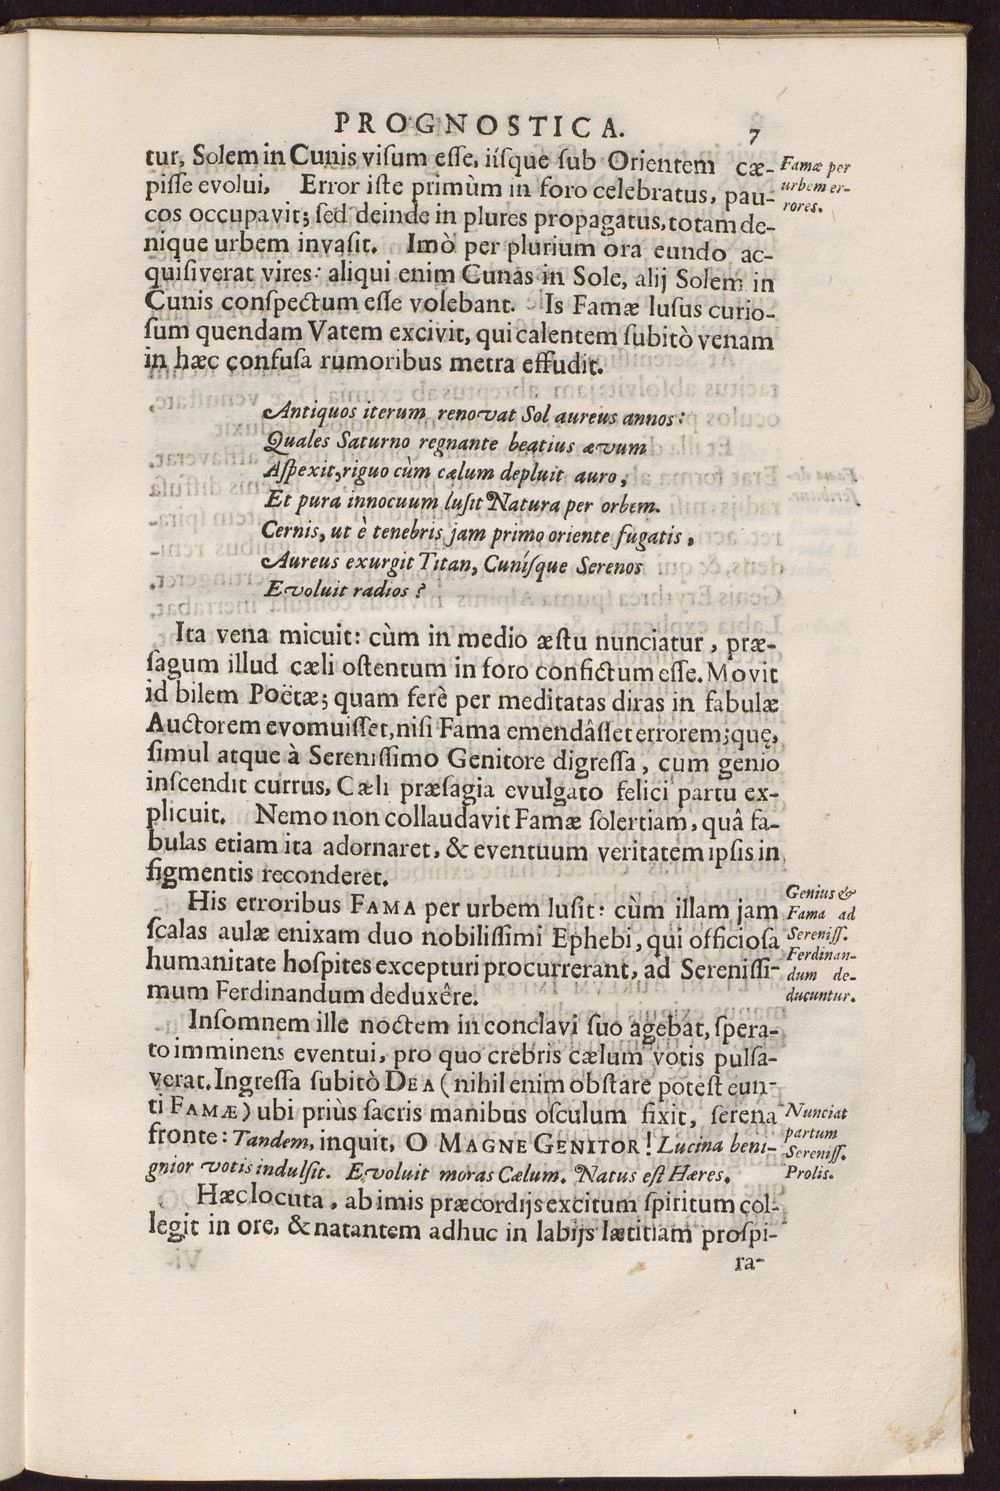 PROGNOSTICA. 7
tur, Solem in Cunis visum esse, iisque sub Orientem cæ-
pisse evolui. Error iste primùm in foro celebratus, pau-
cos occupavit; sed deinde in plures propagatus, totam de-
nique urbem invasit. Imò per plurium ora eundo ac-
quisiverat vires: aliqui enim Cunas in Sole, alij Solem in
Cunis conspectum esse volebant. Is Famæ lusus curio-
sum quendam Vatem excivit, qui calentem subitò venam
in hæc confusa rumoribus metra effudit.
Famæ per
urbem er-
rores.
Antiquos iterum renovat Sol aureus annos:
Quales Saturno regnante beatius ævum
Aspexit, riguo cùm cælum depluit auro,
Et pura innocuum lusit Natura per orbem.
Cernis, ut è tenebris jam primo oriente fugatis,
Aureus exurgit Titan, Cunísque Serenos
Evoluit radios?
Ita vena micuit: cùm in medio æstu nunciatur, præ-
sagum illud cæli ostentum in foro confictum esse. Movit
id bilem Poëtæ; quam ferè per meditatas diras in fabulæ
Auctorem evomuisset, nisi Fama emendâsset errorem; quę,
simul atque à Serenissimo Genitore digressa, cum genio
inscendit currus, Cæli præsagia evulgato felici partu ex-
plicuit. Nemo non collaudavit Famæ solertiam, quâ fa-
bulas etiam ita adornaret, & eventuum veritatem ipsis in
figmentis reconderet.
His erroribus FAMA per urbem lusit: cùm illam jam
scalas aulæ enixam duo nobilissimi Ephebi, qui officiosa
humanitate hospites excepturi procurrerant, ad Serenissi-
mum Ferdinandum deduxêre.
Genius &
Fama ad
Sereniss.
Ferdinan-
dum de-
ducuntur.
Insomnem ille noctem in conclavi suo agebat, spera-
to imminens eventui, pro quo crebris cælum votis pulsa-
verat. Ingressa subitò DEA (nihil enim obstare potest eun-
ti FAMÆ) ubi priùs sacris manibus osculum fixit, serena
fronte: Tandem, inquit, O MAGNE GENITOR! Lucina beni-
gnior votis indulsit. Evoluit moras Cælum. Natus est Hæres.
Nunciat
partum
Sereniss.
Prolis.
Hæc locuta, ab imis præcordijs excitum spiritum col-
legit in ore, & natantem adhuc in labijs lætitiam prospi-
ra-